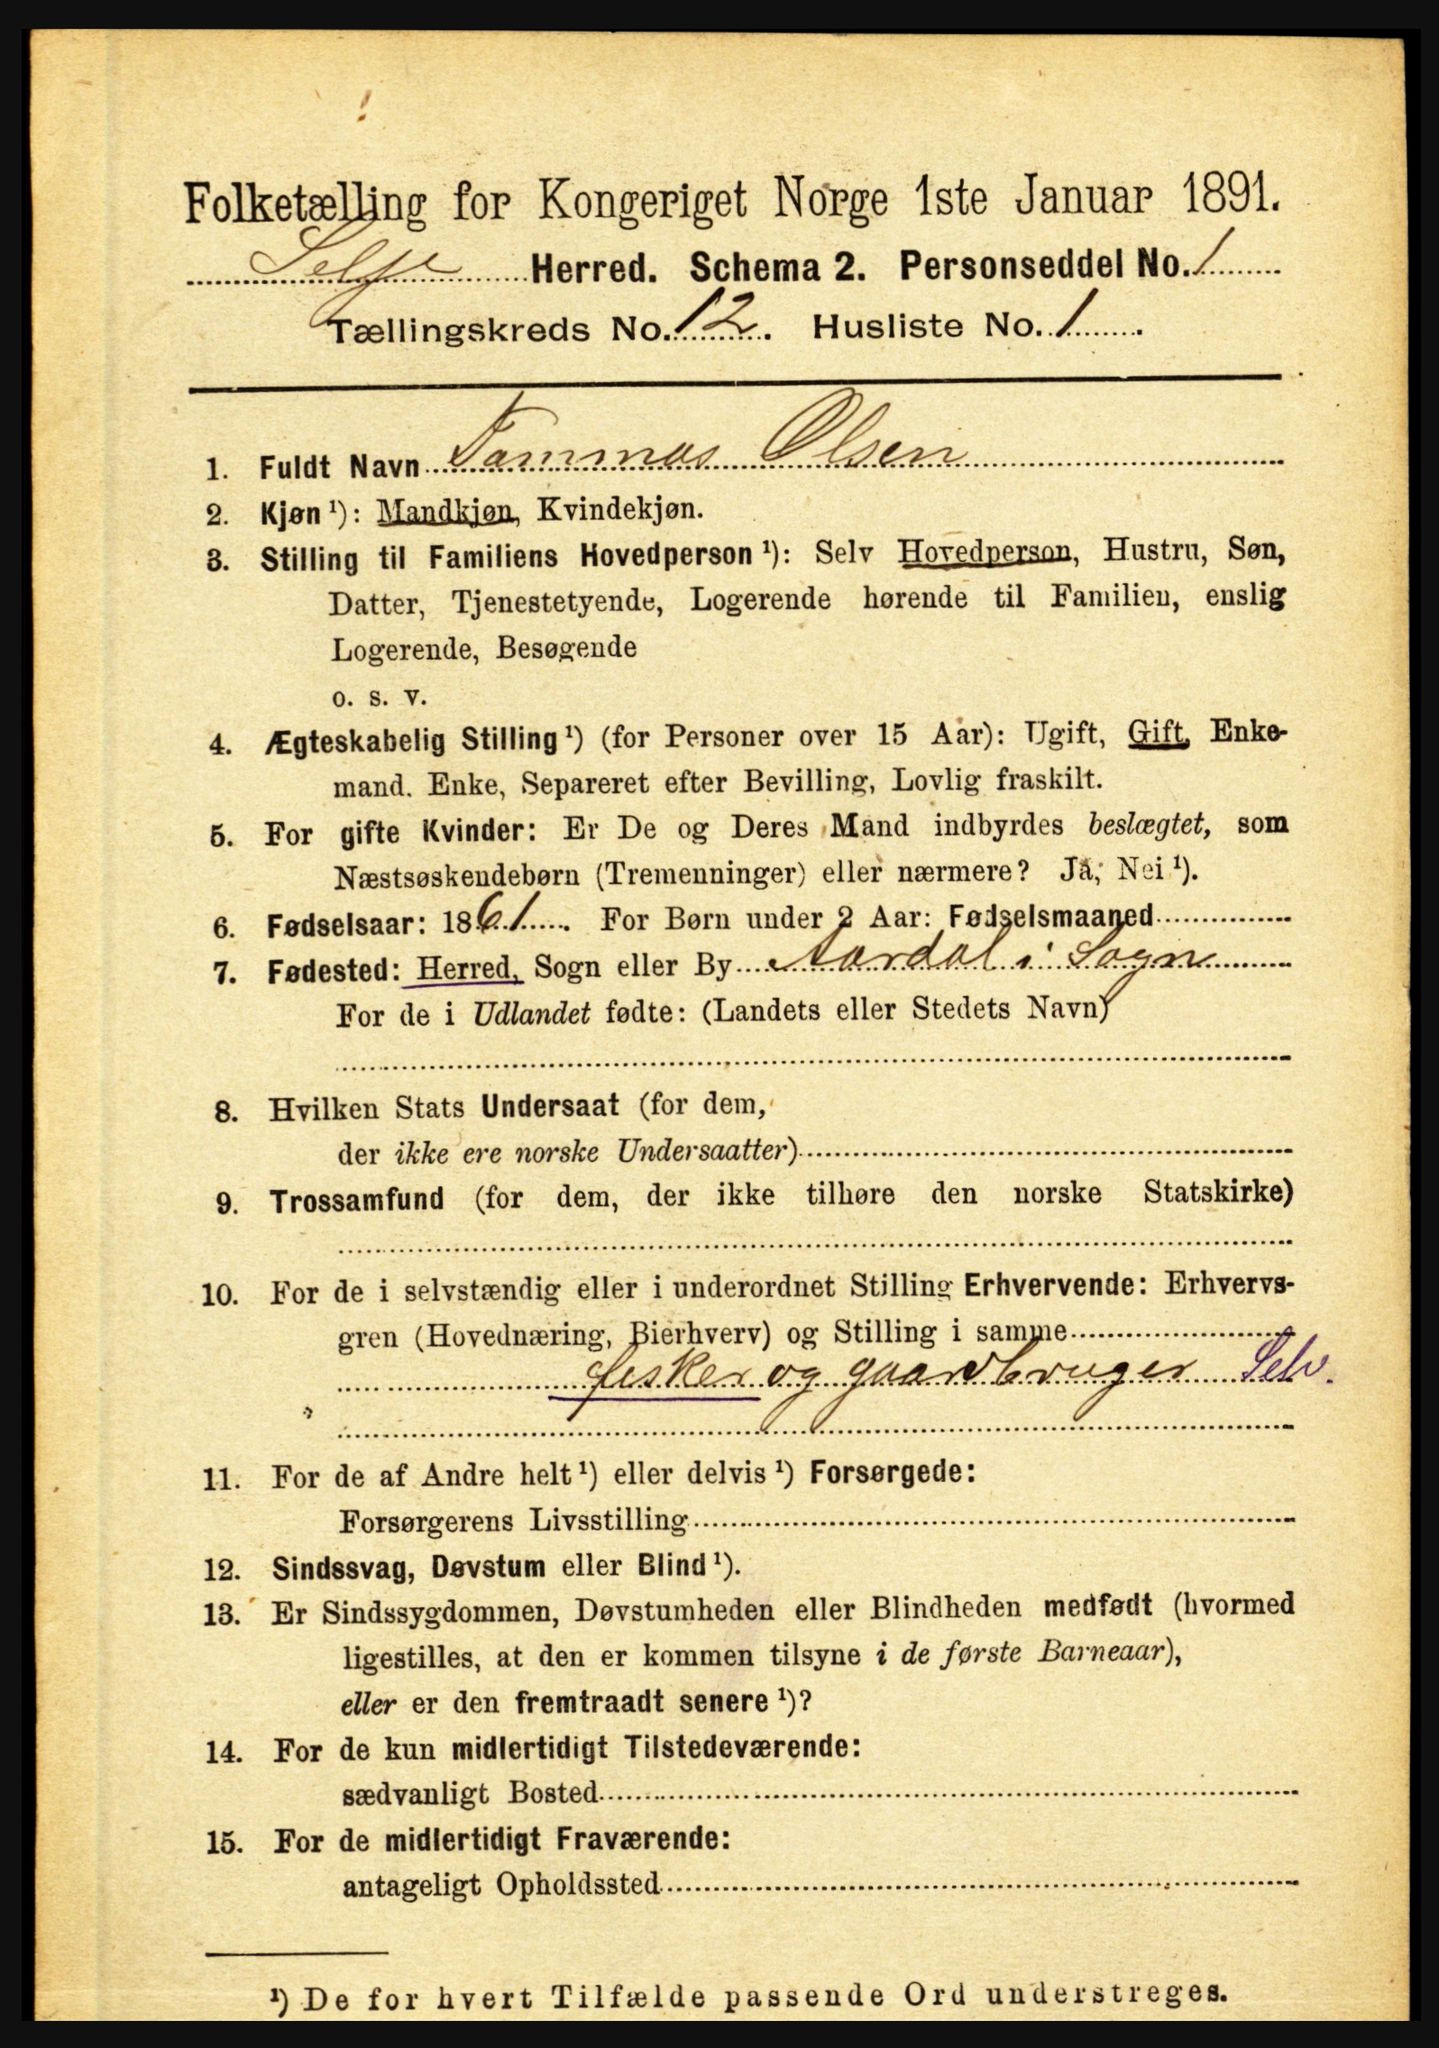 Folketælling for Kongeriget Norge 1ste Januar 1891.
Selje Herred. Schema 2. Personseddel No. 1
Tællingskreds No. 12. Husliste No. 1.
1. Fuldt Navn Tammas Olsen
2. Kjøn ¹): Mandkjøn, Kvindekjøn.
3. Stilling til Familiens Hovedperson ¹): Selv Hovedperson, Hustru, Søn,
Datter, Tjenestetyende, Logerende hørende til Familien, enslig
Logerende, Besøgende
o. s. v.
4. Ægteskabelig Stilling ¹) (for Personer over 15 Aar): Ugift, Gift, Enke-
mand. Enke, Separeret efter Bevilling, Lovlig fraskilt.
5. For gifte Kvinder: Er De og Deres Mand indbyrdes beslægtet, som
Næstsøskendebørn (Tremenninger) eller nærmere? Ja, Nei ¹).
6. Fødselsaar: 1861. For Børn under 2 Aar: Fødselsmaaned
7. Fødested: Herred, Sogn eller By Aardal i Sogn
For de i Udlandet fødte: (Landets eller Stedets Navn)
8. Hvilken Stats Undersaat (for dem,
der ikke ere norske Undersaatter)
9. Trossamfund (for dem, der ikke tilhøre den norske Statskirke)
10. For de i selvstændig eller i underordnet Stilling Erhvervende: Erhvervs-
gren (Hovednæring, Bierhverv) og Stilling i samme
fisker og gaardbruger Selv.
11. For de af Andre helt ¹) eller delvis ¹) Forsørgede:
Forsørgerens Livsstilling
12. Sindssvag, Døvstum eller Blind ¹).
13. Er Sindssygdommen, Døvstumheden eller Blindheden medfødt (hvormed
ligestilles, at den er kommen tilsyne i de første Barneaar),
eller er den fremtraadt senere ¹)?
14. For de kun midlertidigt Tilstedeværende:
sædvanligt Bosted
15. For de midlertidigt Fraværende:
antageligt Opholdssted
¹) De for hvert Tilfælde passende Ord understreges.